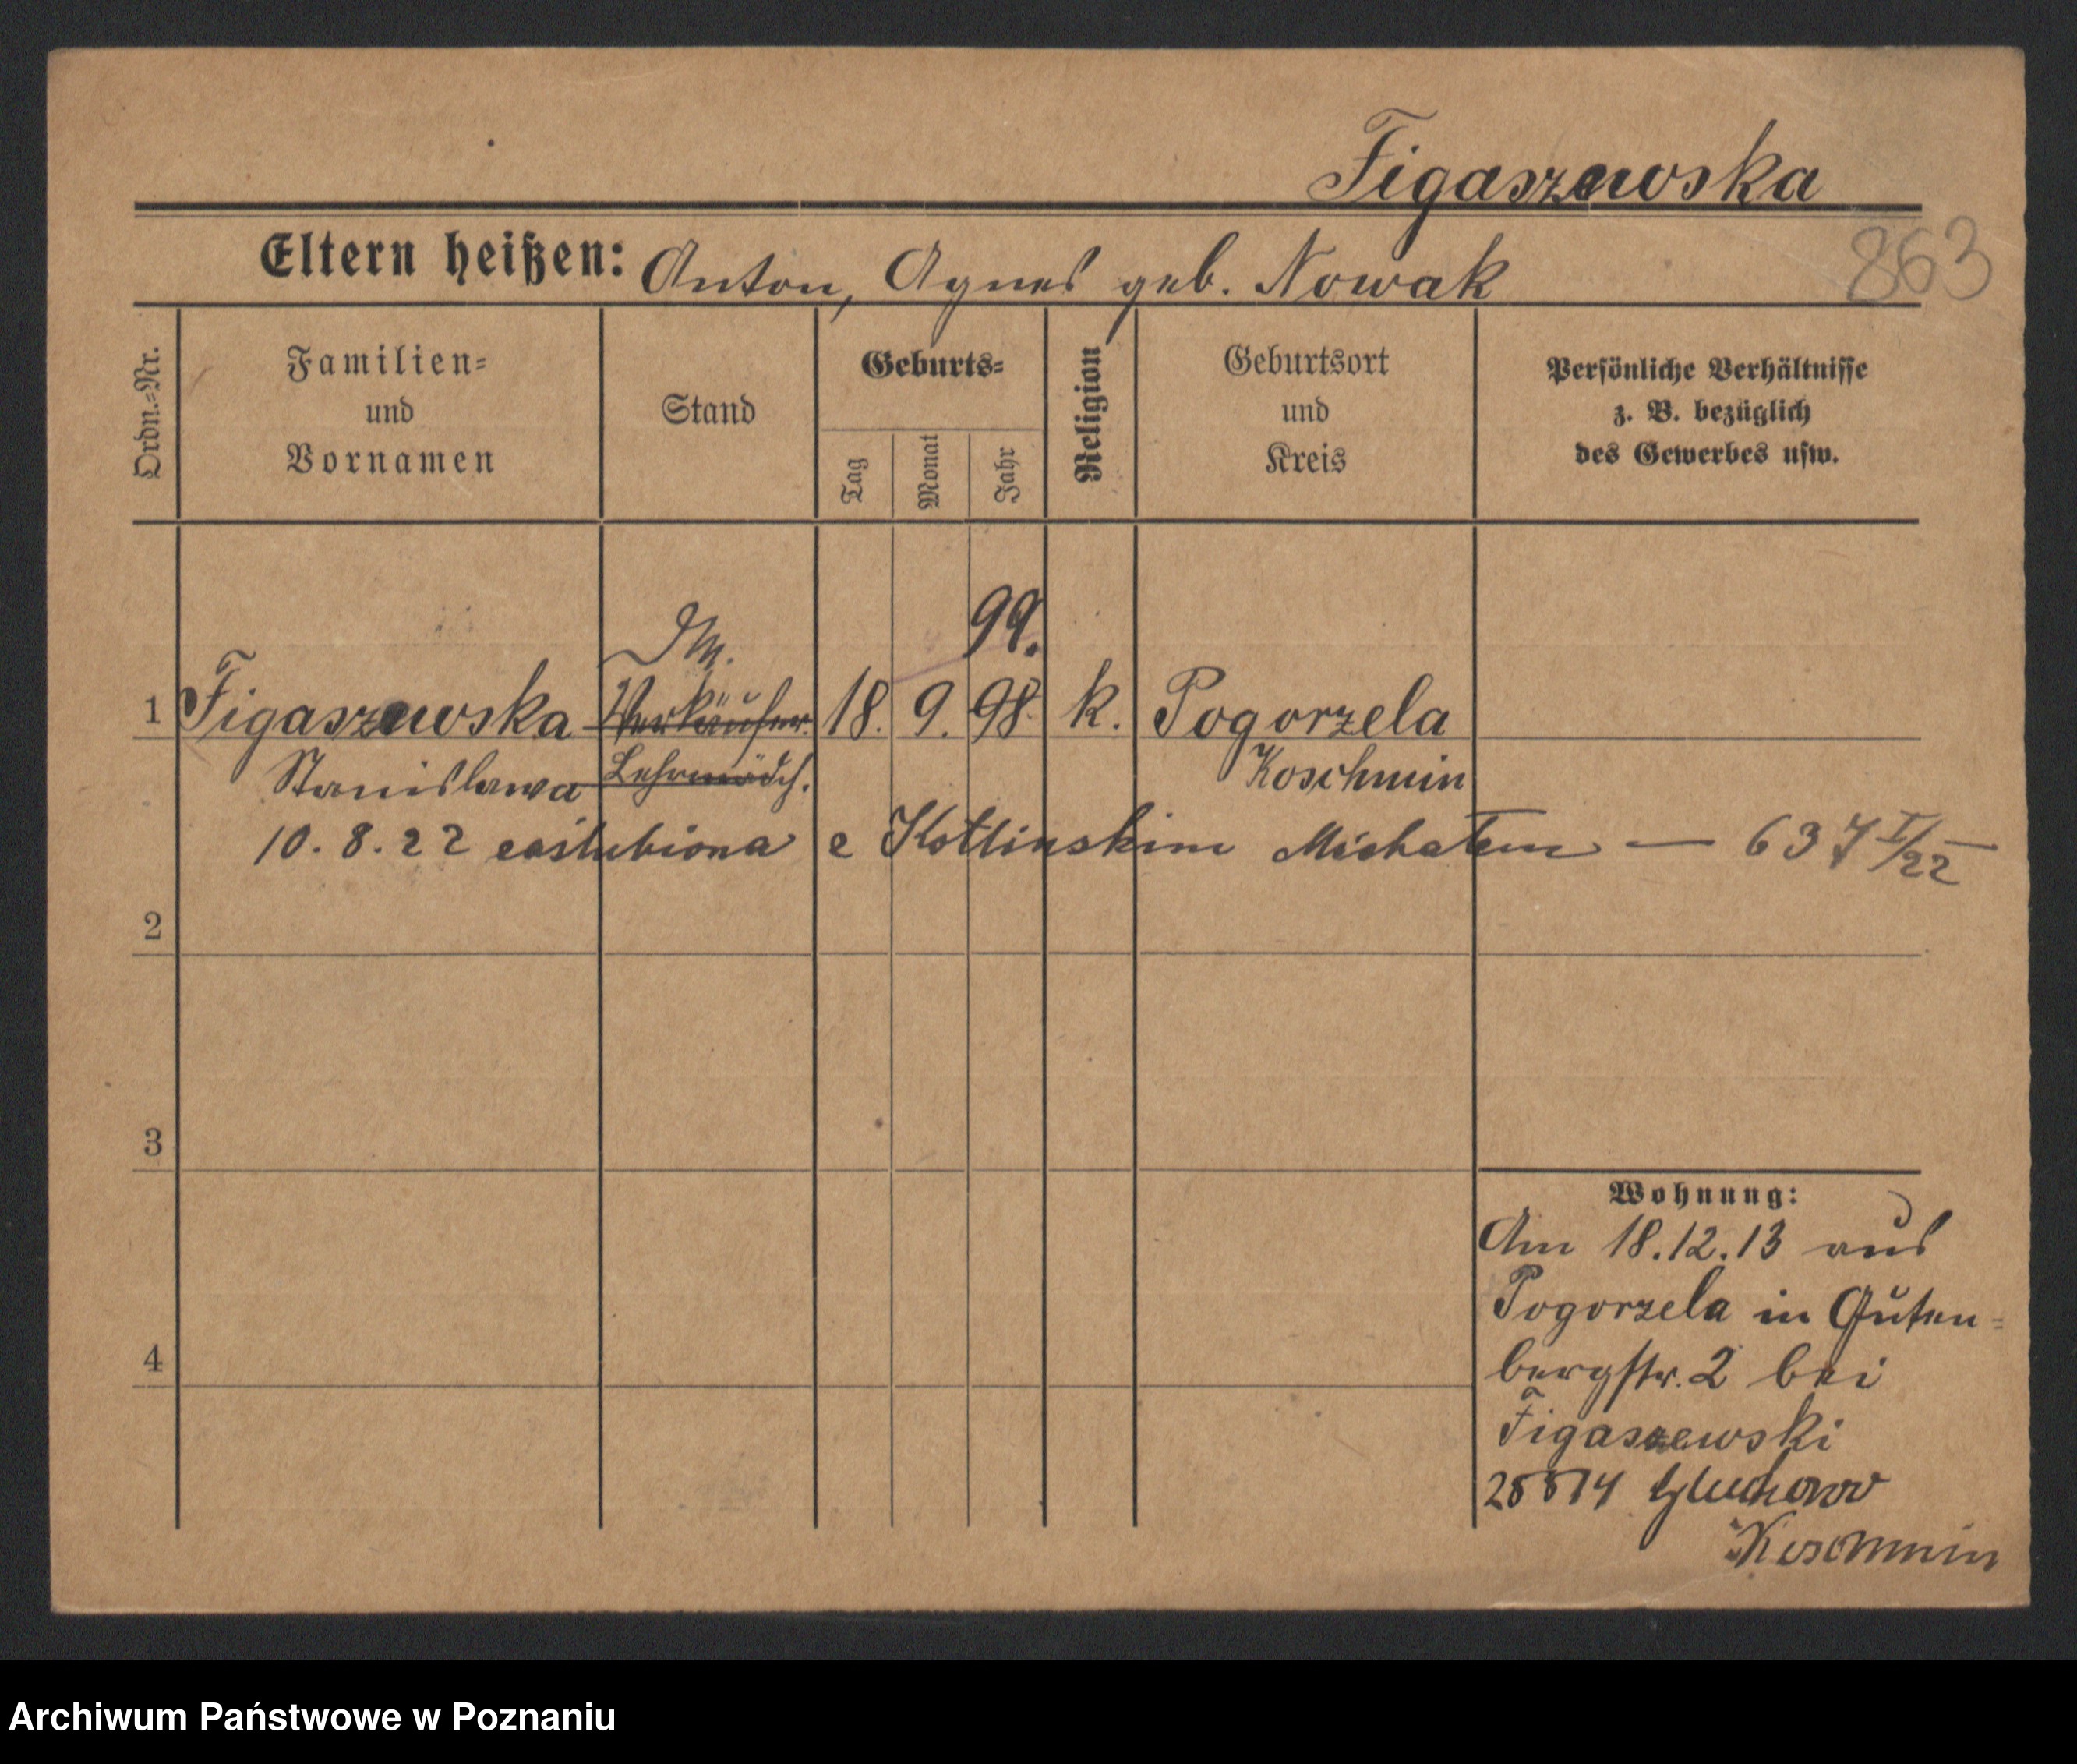 Figaszewska
863
Eltern heißen: Anton, Agnes geb. Nowak
Ordn.-Nr.
Familien-
und
Vornamen
Stand
Geburts-
Tag
Monat
Jahr
Religion
Geburtsort
und
Kreis
Persönliche Verhältnisse
z. B. bezüglich
des Gewerbes usw.
99.
1 Figaszewska Verkäufer. 18. 9. 98. k. Pogorzela
Stanislawa Lehrmädch. Koschmin
10. 8. 22 zaślubiona z Kotlinskim Michałem — 637 I/22
2
3
4
Wohnung:
Am 18.12.13 aus
Pogorzela in Guten-
bergstr. 2 bei
Figaszewski
28 8 14 Gluchowo
Koschmin
Archiwum Państwowe w Poznaniu